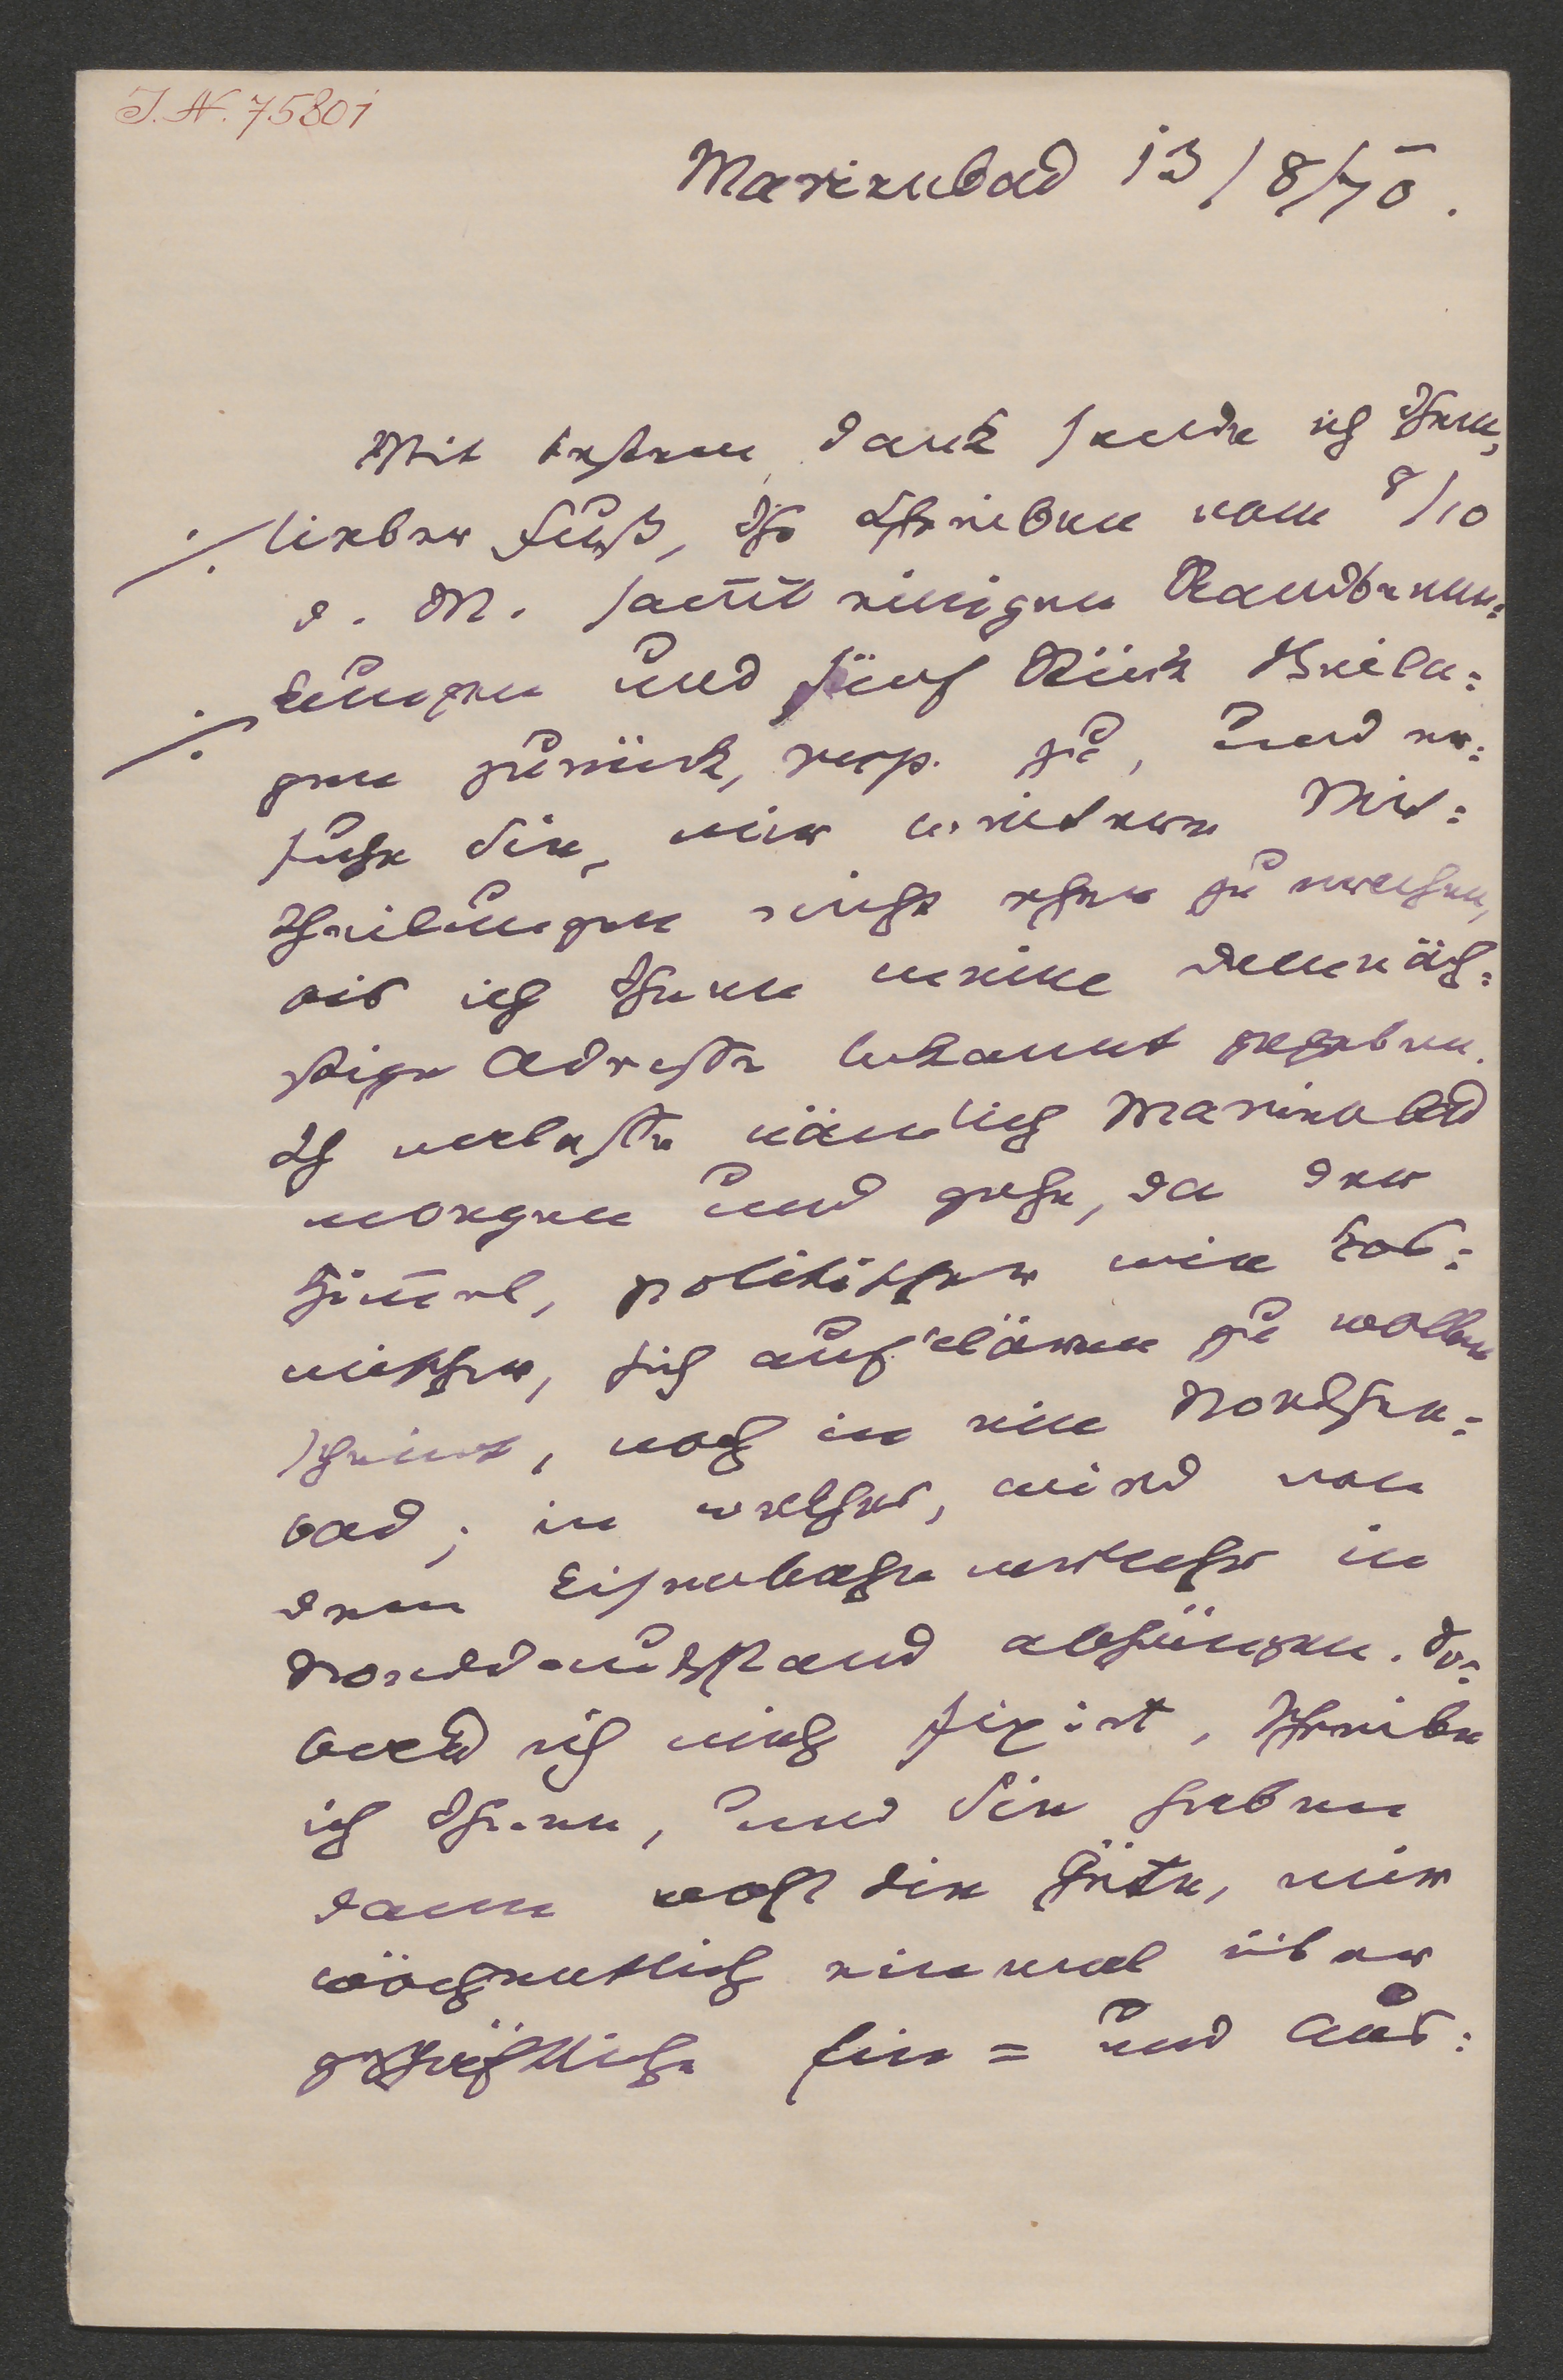 I. N. 75801
Marienbad 13/8/70.
Mit bestem Dank sende ich Ihnen,
lieber Fuß, Ihr Schreiben vom 8/10
d. M. sam̅t einigen Randbemer:
kungen und fünf Stück Beila:
gen zurück, resp. zu, und er:
suche Sie, mir weitere Mit:
theilungen nicht eher zu machen,
als ich Ihnen meine demnäch:
stige Adresse bekannt gegeben.
Ich verlasse nämlich Marienbad
morgen und gehe, da der
Him̅el, politischer wie kos:
mischer, sich aufklären zu wollen
scheint, noch in ein Nordsee:
bad; in welches, wird von
dem Eisenbahnverkehr in
Norddeutschland abhängen. So:
bald ich mich fixirt, schreibe
ich Ihnen, und Sie haben
dann wohl die Güte, mir
wöchentlich einmal über
geschäftliche Ein= und Aus: